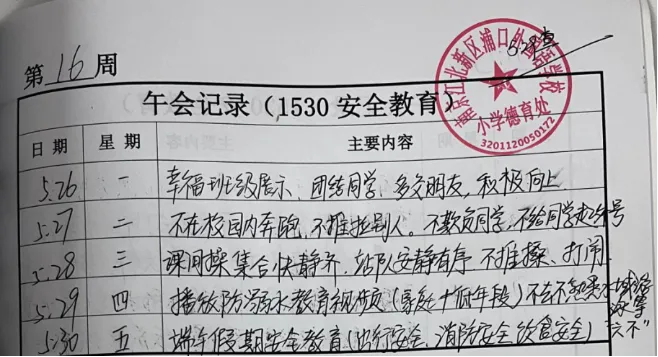 第16周
5.28查
南京江北新区浦口外国语学校
小学德育处
3201120050172
午会记录（1530安全教育）
日期 星期 主要内容
5.26 一 幸福班级展示、团结同学、多交朋友，积极向上
5.27 二 不在校园内奔跑，不推拉别人。不欺负同学，不给同学起外号
5.28 三 课间操集合快静齐，站队安静有序 不推搡、打闹
5.29 四 播放防溺水教育视频（易处十低年段）不去不熟悉水域游泳等
5.30 五 端午假期安全教育（出行安全、消防安全、饮食安全）"六不"